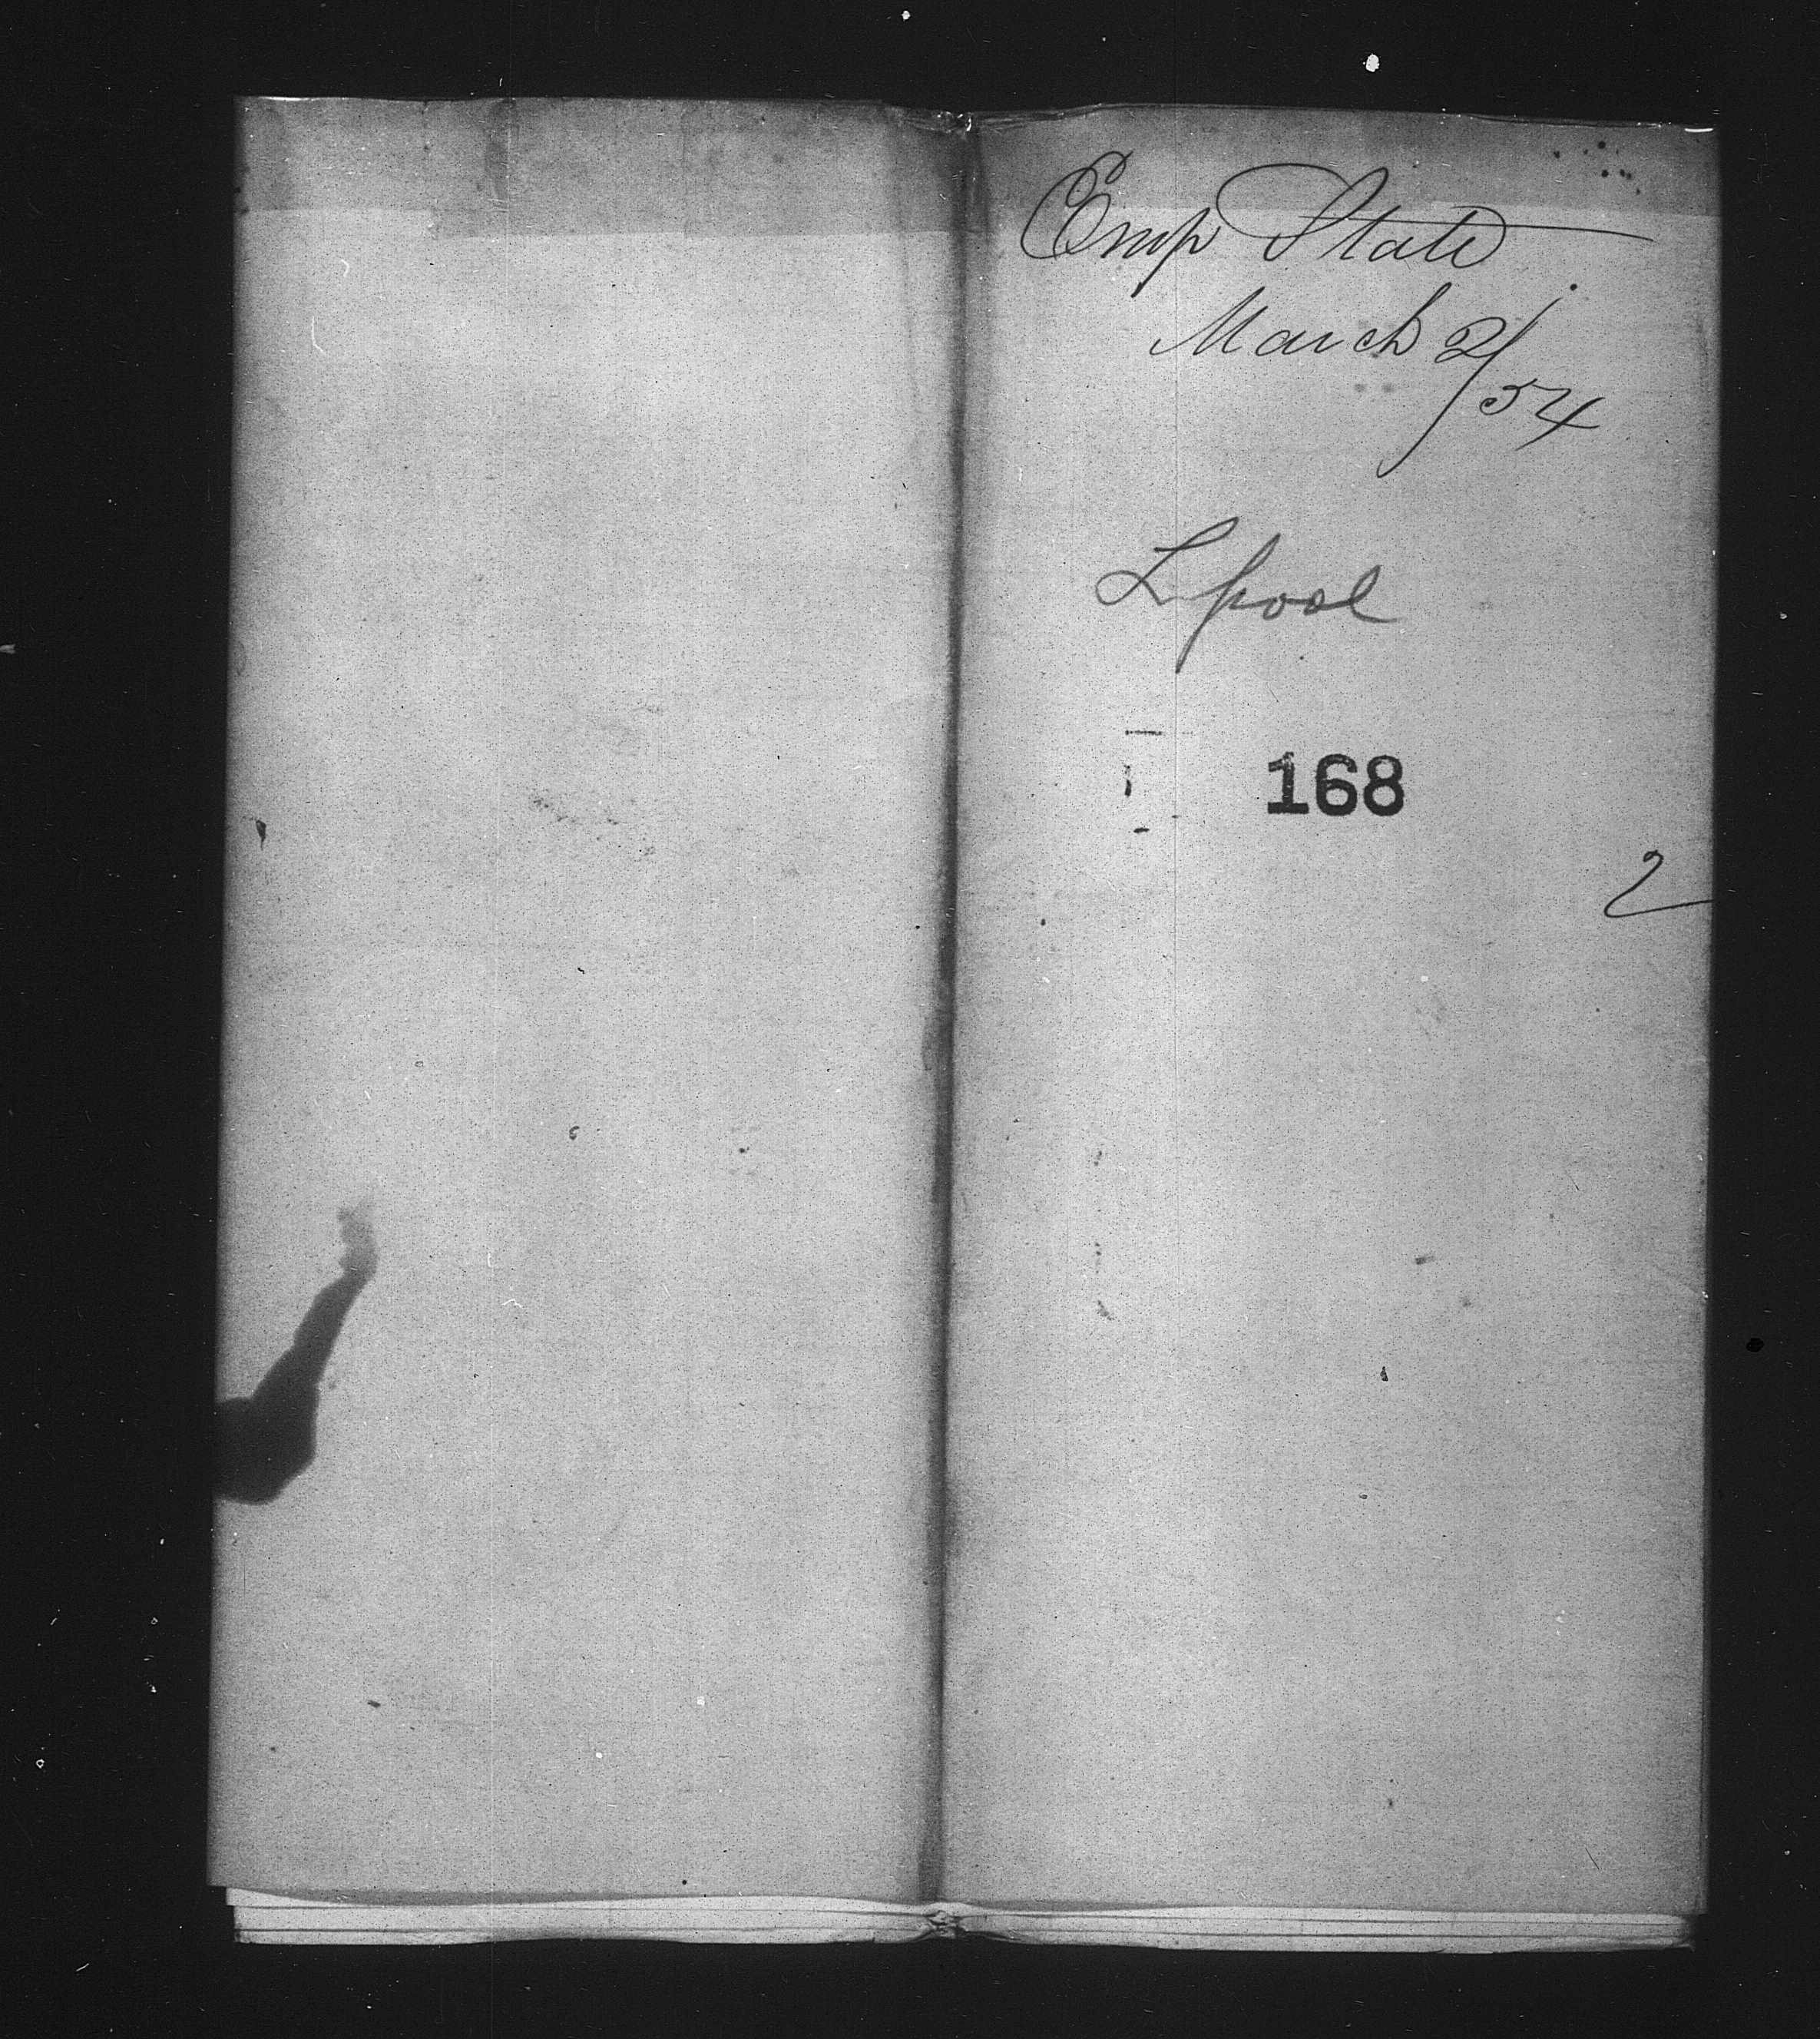 Emp State
March 2/54
L pool
168
2